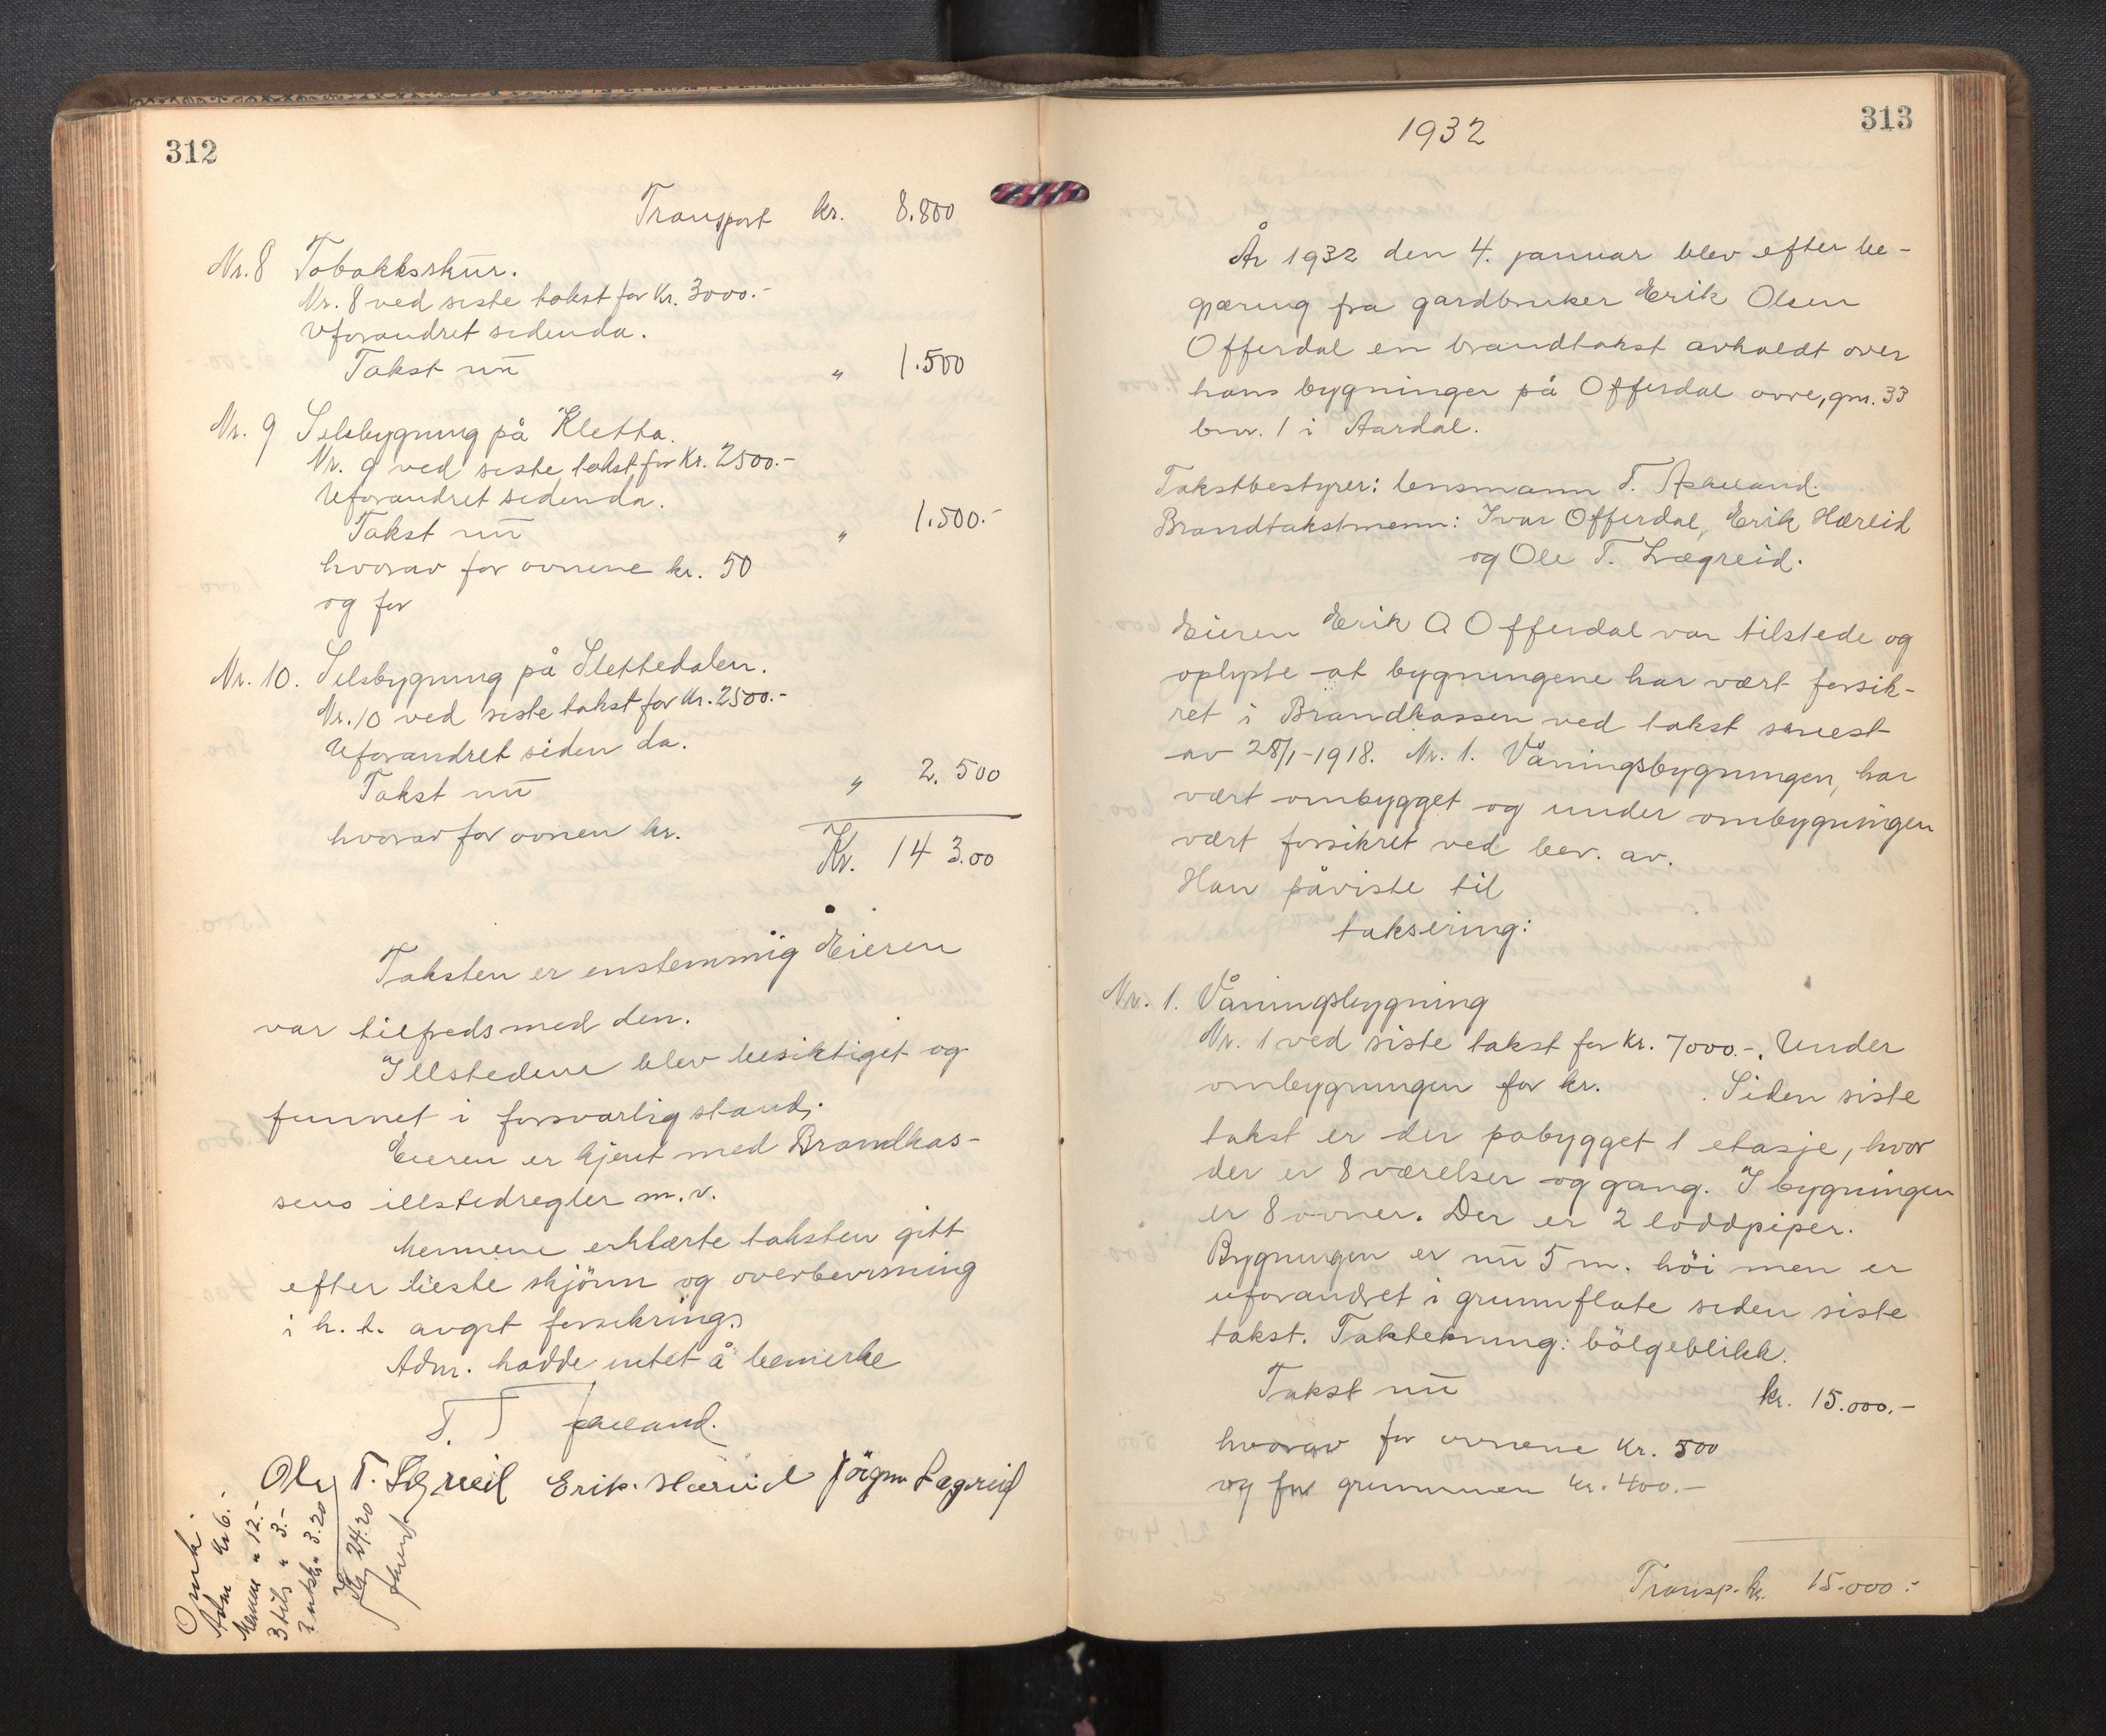 312
Transport kr. 8.800
Nr. 8 Tobakksskur.
Nr. 8 ved siste takst for kr. 3000.-
Uforandret siden da.
Takst nū " 1.500
Nr. 9 Selsbygning på Kletta.
Nr. 9 ved siste takst for kr. 2500.-
Uforandret siden da.
Takst nū " 1.500.-
hvorav for ovnene kr. 50
og for
Nr. 10. Selsbygning på Slettedalen.
Nr. 10 ved siste takst for kr. 2500.-
Uforandret siden da.
Takst nū " 2.500
hvorav for ovnen kr.
Kr. 143.00
Taksten er enstemmig Eieren
var tilfreds med den.
Illstedene blev besiktiget og
funnet i forsvarlig stand.
Eieren er kjent med Brandkas-
sens illstedregler m.v.
Mennene erklærte taksten gitt
efter beste skjönn og overbevisning
i h. t. avgit forsikring.
Adm. hadde intet å bemerke
T.
Ole T. Lægreid Erik Hæreid Jörgen Lægreid
Omk.
Adm kr 6.-
Mennene " 12.-
3 tils " 3.-
2 utskr. " 3.20
Kr 24.20
313
1932
År 1932 den 4. januar blev efter be-
gjæring fra gardbruker Erik Olsen
Offerdal en brandtakst avholdt over
hans bygninger på Offerdal övre, gnr. 33
bnr. 1 i Aardal.
Takstbestyrer: lensmann T.
Brandtakstmenn: Ivar Offerdal, Erik Hæreid
og Ole T. Lægreid.
Eieren Erik O Offerdal var tilstede og
oplyste at bygningene har vært forsik-
ret i Brandkassen ved takst senest
av 28/1-1918. Nr. 1. Våningsbygningen, har
vært ombygget og under ombygningen
vært forsikret ved bev. av.
Han påviste til
taksering:
Nr. 1. Våningsbygning
Nr. 1 ved siste takst for kr. 7000.-. Under
ombygningen for kr. . Siden siste
takst er der påbygget 1 etasje, hvor
der er 8 værelser og gang. I bygningen
er 8 ovner. Der er 2 loddpiper.
Bygningen er nū 5 m. höi men er
uforandret i grunnflate siden siste
takst. Taktekning: bölgeblikk.
Takst nū kr. 15.000.-
hvorav for ovnene kr. 500
og for grunnmuren kr. 400.-
Transp. kr. 15.000.-